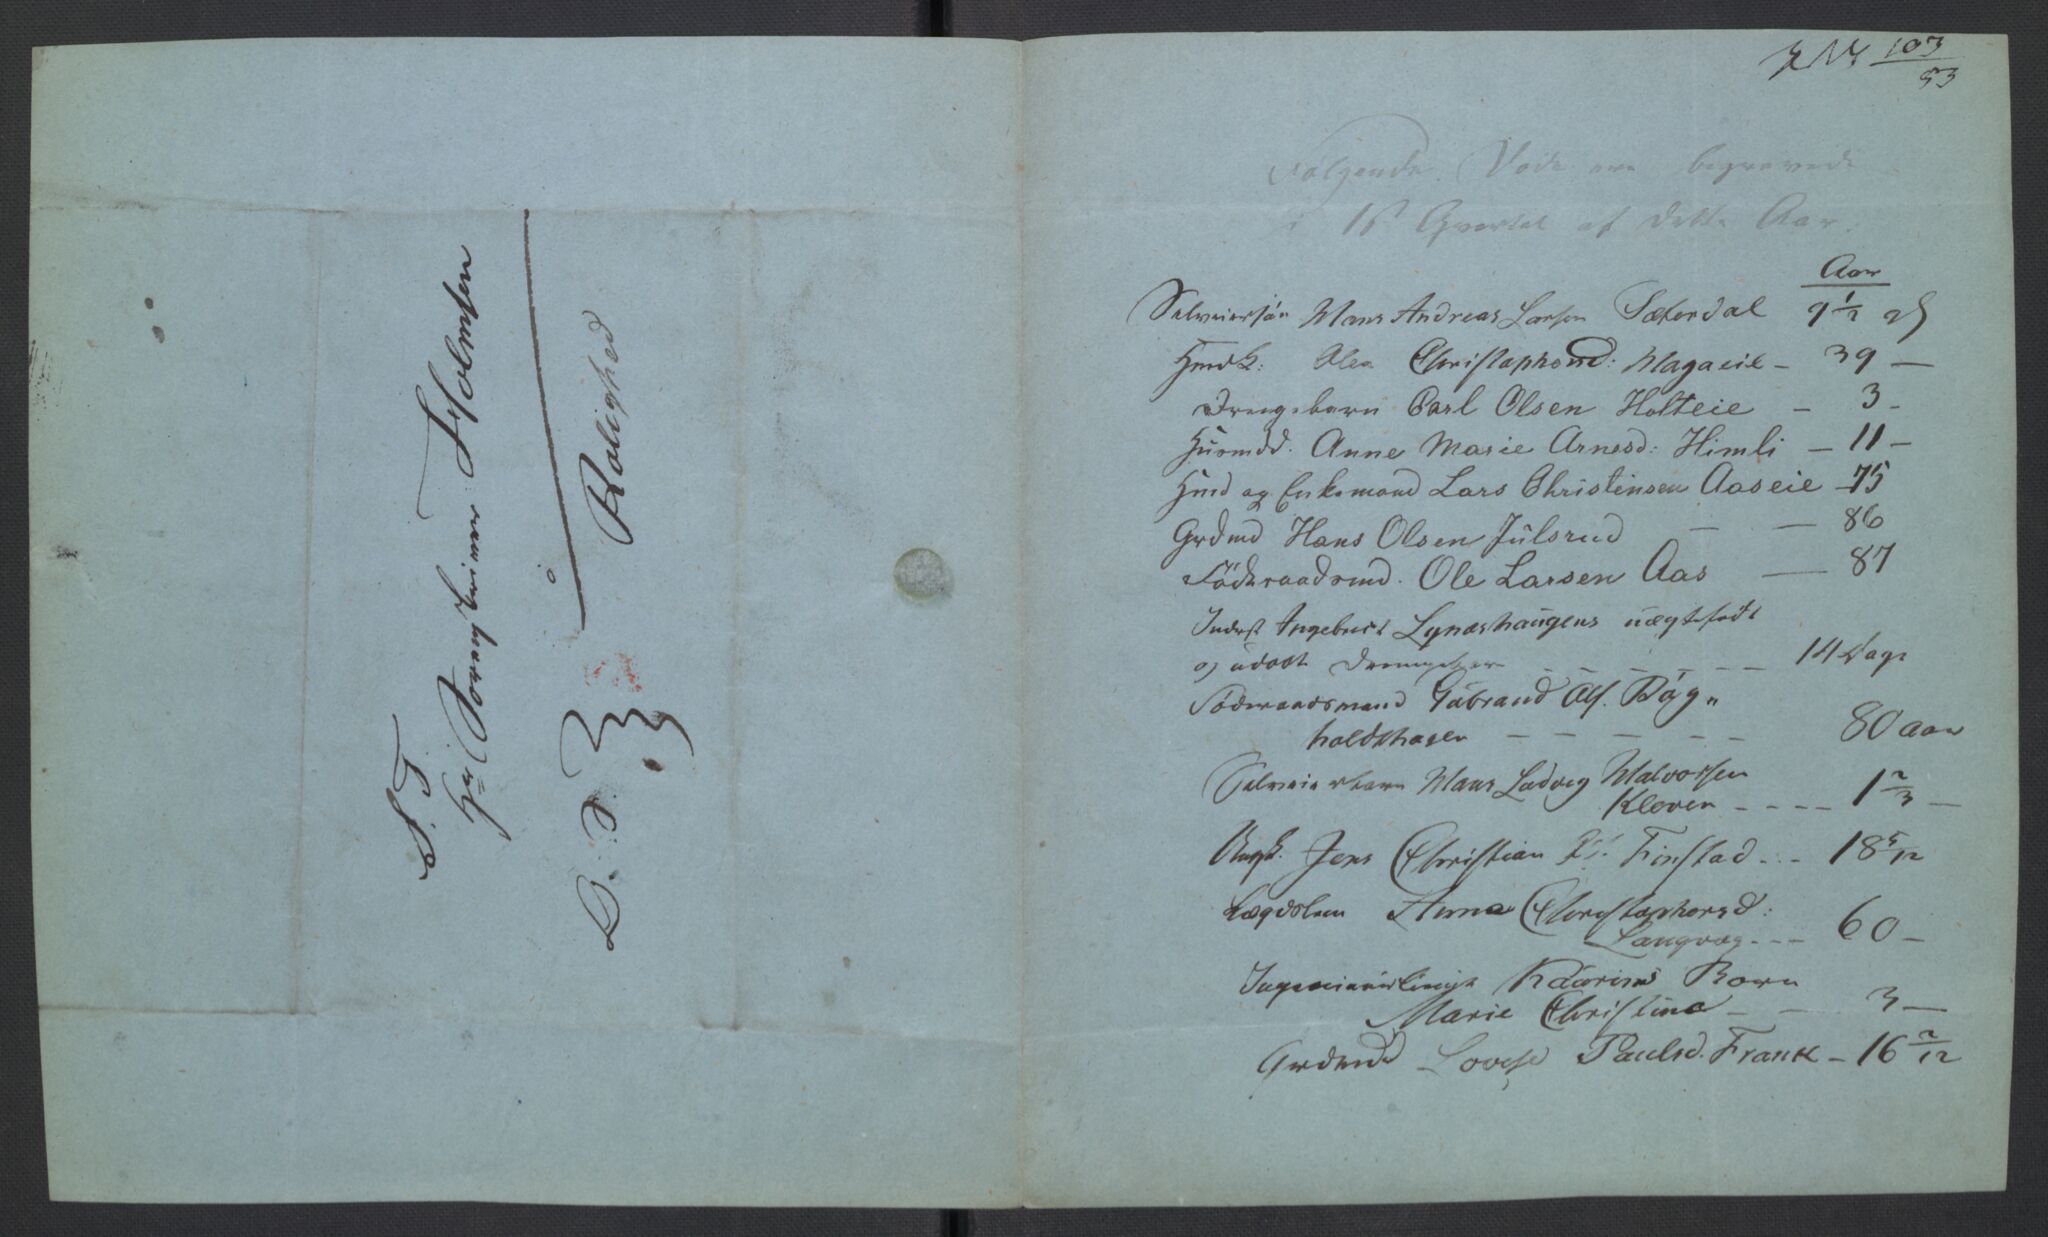 S. T.
Hr Sorenskriver Holmsen
å Rolighed
D. S.
J No 103/53
Følgende Døde ere begravede
i 1ste Qvartal af dette Aar.
Aar
Selveiersøn Hans Andreas Larsen Sæterdal 9 1/2
Hmdk: Olea Christophersd: Magaeie - 39 -
Drengebarn Carl Olsen Holteie - 3 -
Huusmdd. Anne Marie Arnesd: Himli - 11 -
Hmd og Enkemand Lars Christensen Aaseie - 75
Grdmd Hans Olsen Julsrud - - 86
Föderaadsmd. Ole Larsen Aas - 87
Inderst Ingebret Lynæshaugens uægtefødt
og udøbt Drengebarn - - - - - - 14 Dage
Föderaadsmand Gulbrand Ols. Bög-
holdthagen - - - - - 80 aar
Selveierbarn Hans Ludvig Halvorsen
Kleven - - - - 1 2/3 -
Ungk. Jens Christian Finstad - - 18 5/12
Lægdslem Anne Christophersd:
Langvag - - - 60 -
Barn
Marie Christine - - 3 -
Lovise Paulsd. Frank - 16 2/12